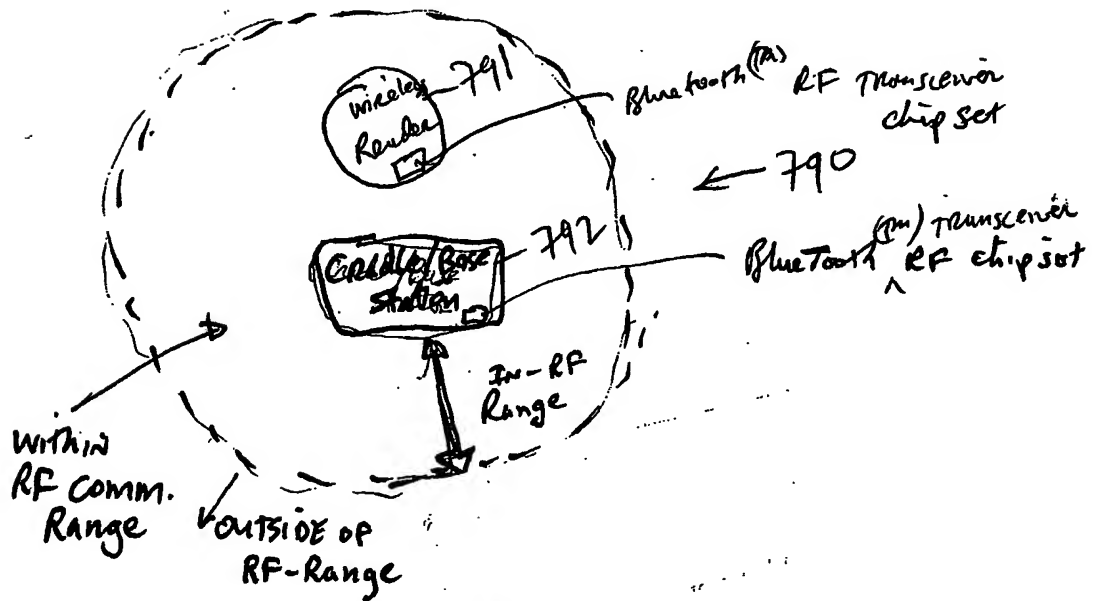 wireless
Reader
791
Bluetooth (TM) RF Transceiver
chip set
790
792
Cradle/Base
Station
BlueTooth (TM) Transceiver
^ RF chip set
In-RF
Range
Within
RF Comm.
Range
OUTSIDE OF
RF-Range